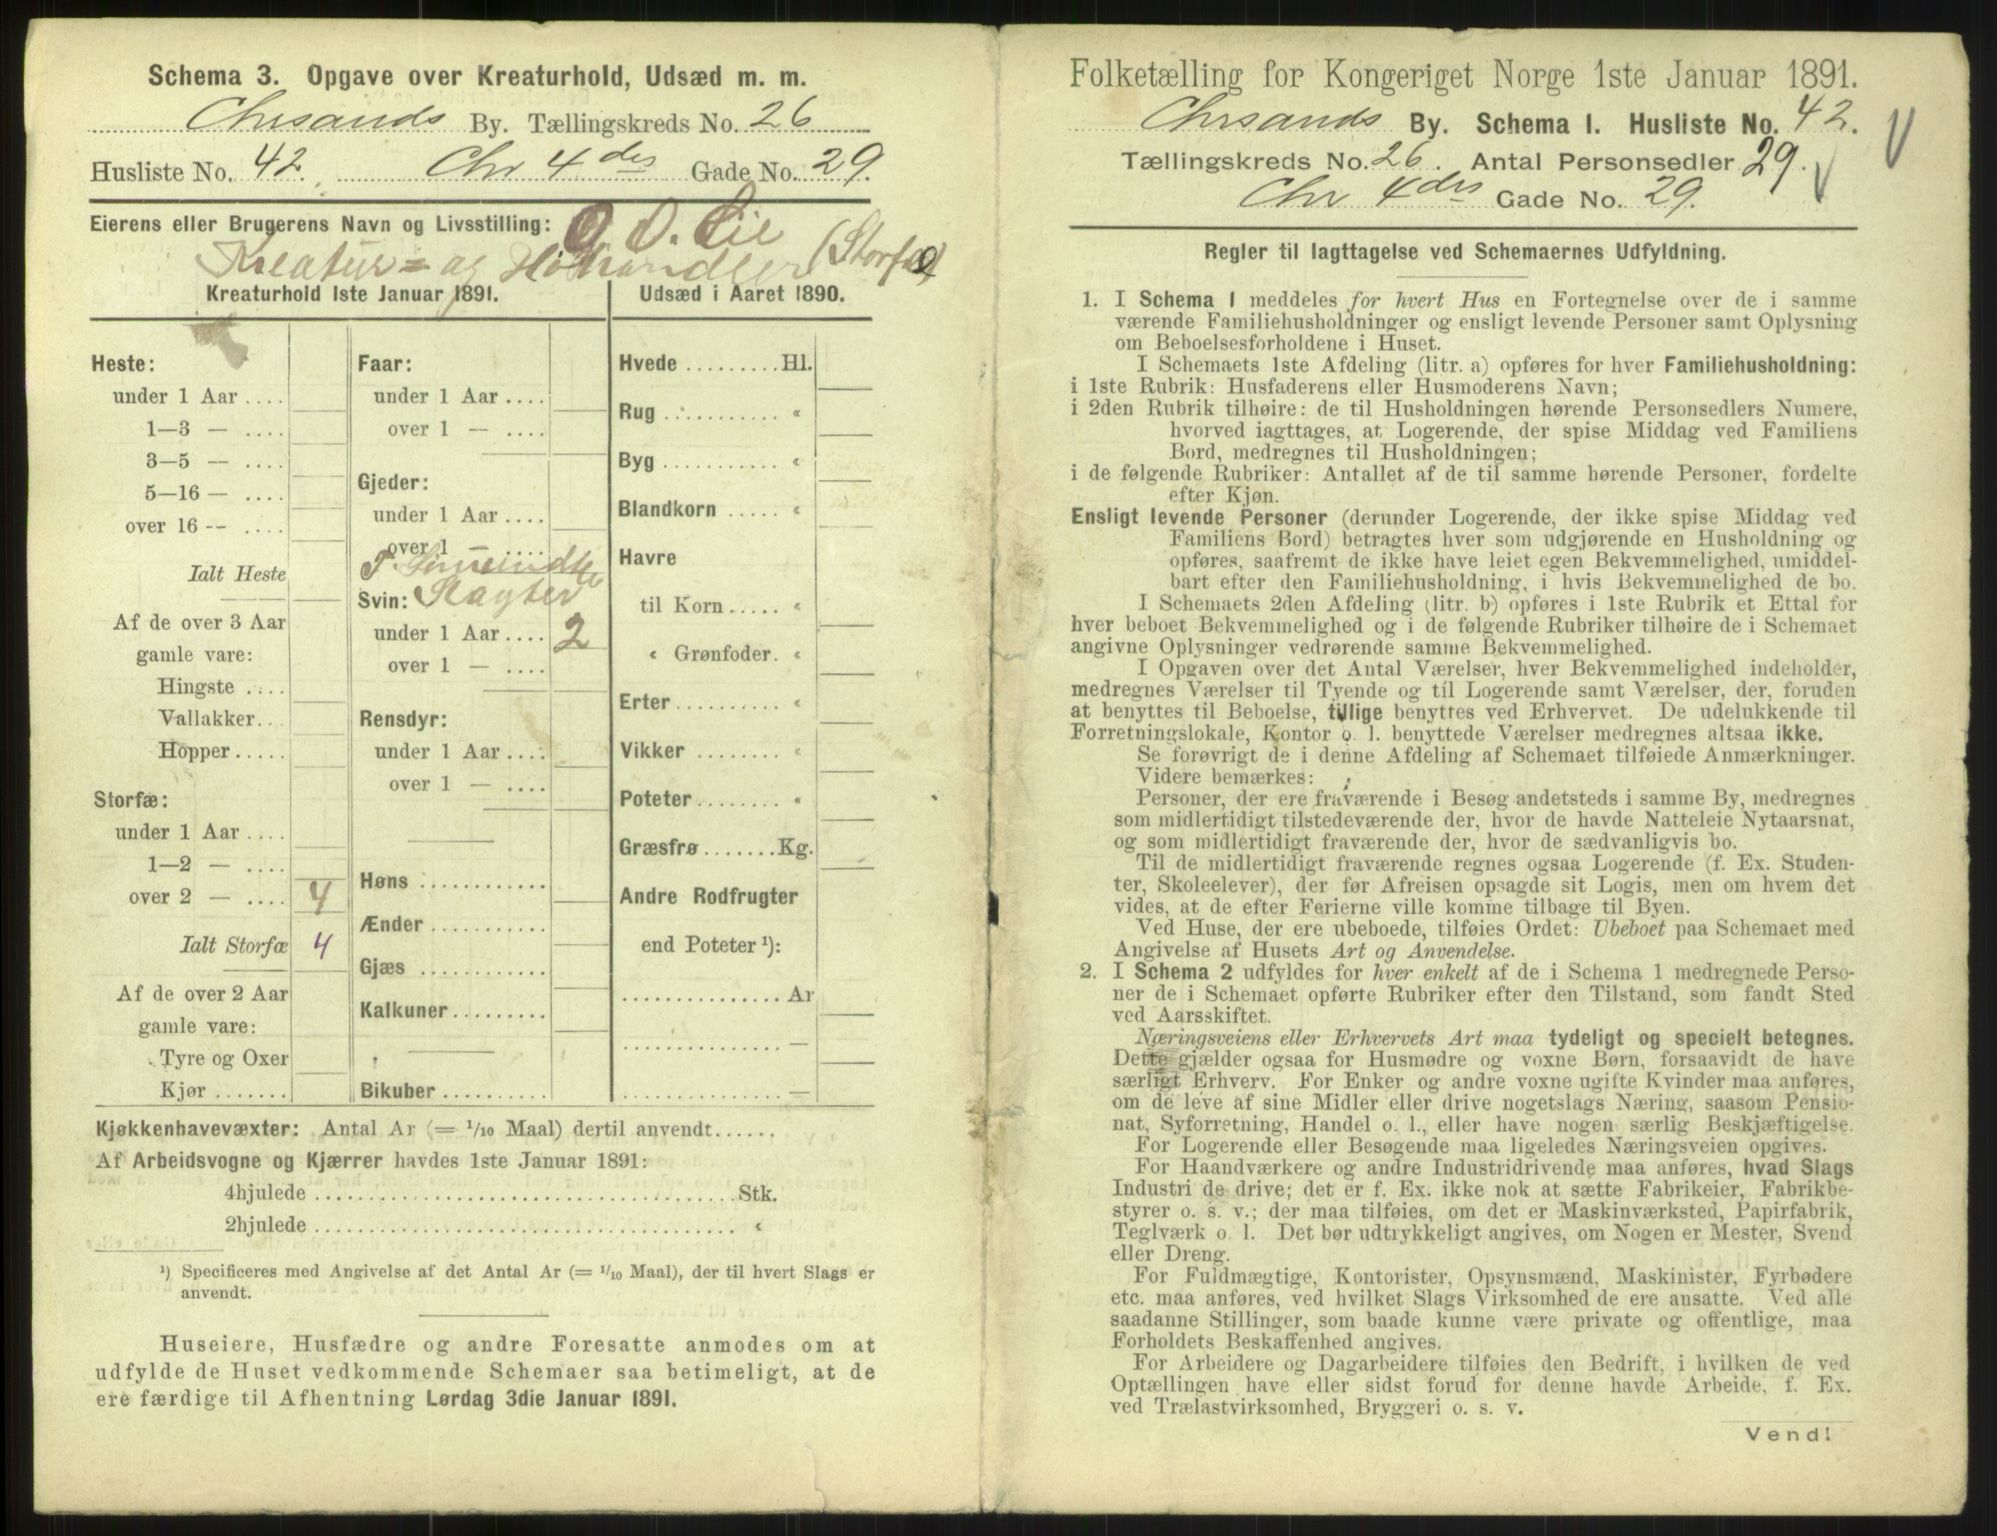 Schema 3. Opgave over Kreaturhold, Udsæd m. m.
Chrsands By. Tællingskreds No. 26
Husliste No. 42. Chr 4 des Gade No. 29.
Eierens eller Brugerens Navn og Livsstilling: O. O. Eie
Kreatur= og Høhandler (Storfæ)
Kreaturhold 1ste Januar 1891.
Heste:
under 1 Aar ....
1—3 — ....
3—5 — ....
5—16 — ....
over 16 -- ....
Ialt Heste
Af de over 3 Aar
gamle vare:
Hingste ....
Vallakker...
Hopper ....
Storfæ:
under 1 Aar ....
1—2 — ....
over 2 — .... 4
Ialt Storfæ 4
Af de over 2 Aar
gamle vare:
Tyre og Oxer
Kjør .......
Faar:
under 1 Aar ....
over 1 — ....
Gjeder:
under 1 Aar ....
over 1 ....
Svin: Slagter
under 1 Aar .... 2
over 1 — ....
Rensdyr:
under 1 Aar ....
over 1 — ....
Høns ............
Ænder ...........
Gjæs ............
Kalkuner.........
Bikuber .........
Udsæd i Aaret 1890.
Hvede .........Hl.
Rug ........... «
Byg ........... «
Blandkorn ..... «
Havre
til Korn ..... «
« Grønfoder. «
Erter......... «
Vikker ........ «
Poteter ........ «
Græsfrø .......Kg.
Andre Rodfrugter
end Poteter ¹):
...............Ar
............... —
............... —
Kjøkkenhavevæxter: Antal Ar (= 1/10 Maal) dertil anvendt......
Af Arbeidsvogne og Kjærrer havdes 1ste Januar 1891:
4hjulede .......................................Stk.
2hjulede ....................................... «
¹) Specificeres med Angivelse af det Antal Ar (= 1/10 Maal), der til hvert Slags er
anvendt.
Huseiere, Husfædre og andre Foresatte anmodes om at
udfylde de Huset vedkommende Schemaer saa betimeligt, at de
ere færdige til Afhentning Lørdag 3die Januar 1891.
Folketælling for Kongeriget Norge 1ste Januar 1891.
Chrsands By. Schema 1. Husliste No. 42.
Tællingskreds No. 26. Antal Personsedler 29.
Chr 4 des Gade No. 29.
Regler til Iagttagelse ved Schemaernes Udfyldning.
1. I Schema 1 meddeles for hvert Hus en Fortegnelse over de i samme
værende Familiehusholdninger og ensligt levende Personer samt Oplysning
om Beboelsesforholdene i Huset.
I Schemaets 1ste Afdeling (litr. a) opføres for hver Familiehusholdning:
i 1ste Rubrik: Husfaderens eller Husmoderens Navn;
i 2den Rubrik tilhøire: de til Husholdningen hørende Personsedlers Numere,
hvorved iagttages, at Logerende, der spise Middag ved Familiens
Bord, medregnes til Husholdningen;
i de følgende Rubriker: Antallet af de til samme hørende Personer, fordelte
efter Kjøn.
Ensligt levende Personer (derunder Logerende, der ikke spise Middag ved
Familiens Bord) betragtes hver som udgjørende en Husholdning og
opføres, saafremt de ikke have leiet egen Bekvemmelighed, umiddel-
bart efter den Familiehusholdning, i hvis Bekvemmelighed de bo.
I Schemaets 2den Afdeling (litr. b) opføres i 1ste Rubrik et Ettal for
hver beboet Bekvemmelighed og i de følgende Rubriker tilhøire de i Schemaet
angivne Oplysninger vedrørende samme Bekvemmelighed.
I Opgaven over det Antal Værelser, hver Bekvemmelighed indeholder,
medregnes Værelser til Tyende og til Logerende samt Værelser, der, foruden
at benyttes til Beboelse, tillige benyttes ved Erhvervet. De udelukkende til
Forretningslokale, Kontor o. l. benyttede Værelser medregnes altsaa ikke.
Se forøvrigt de i denne Afdeling af Schemaet tilføiede Anmærkninger.
Videre bemærkes:
Personer, der ere fraværende i Besøg andetsteds i samme By, medregnes
som midlertidigt tilstedeværende der, hvor de havde Natteleie Nytaarsnat,
og som midlertidigt fraværende der, hvor de sædvanligvis bo.
Til de midlertidigt fraværende regnes ogsaa Logerende (f. Ex. Studen-
ter, Skoleelever), der før Afreisen opsagde sit Logis, men om hvem det
vides, at de efter Ferierne ville komme tilbage til Byen.
Ved Huse, der ere ubeboede, tilføies Ordet: Ubeboet paa Schemaet med
Angivelse af Husets Art og Anvendelse.
2. I Schema 2 udfyldes for hver enkelt af de i Schema 1 medregnede Perso-
ner de i Schemaet opførte Rubriker efter den Tilstand, som fandt Sted
ved Aarsskiftet.
Næringsveiens eller Erhvervets Art maa tydeligt og specielt betegnes.
Dette gjælder ogsaa for Husmødre og voxne Børn, forsaavidt de have
særligt Erhverv. For Enker og andre voxne ugifte Kvinder maa anføres,
om de leve af sine Midler eller drive nogetslags Næring, saasom Pensio-
nat, Syforretning, Handel o. l., eller have nogen særlig Beskjæftigelse.
For Logerende eller Besøgende maa ligeledes Næringsveien opgives.
For Haandværkere og andre Industridrivende maa anføres, hvad Slags
Industri de drive; det er f. Ex. ikke nok at sætte Fabrikeier, Fabrikbe-
styrer o. s. v.; der maa tilføies, om det er Maskinværksted, Papirfabrik,
Teglværk o. l. Det bør udtrykkeligt angives, om Nogen er Mester, Svend
eller Dreng.
For Fuldmægtige, Kontorister, Opsynsmænd, Maskinister, Fyrbødere
etc. maa anføres, ved hvilket Slags Virksomhed de ere ansatte. Ved alle
saadanne Stillinger, som baade kunne være private og offentlige, maa
Forholdets Beskaffenhed angives.
For Arbeidere og Dagarbeidere tilføies den Bedrift, i hvilken de ved
Optællingen have eller sidst forud for denne havde Arbeide, f. Ex.
ved Trælastvirksomhed, Bryggeri o. s. v.
Vend!